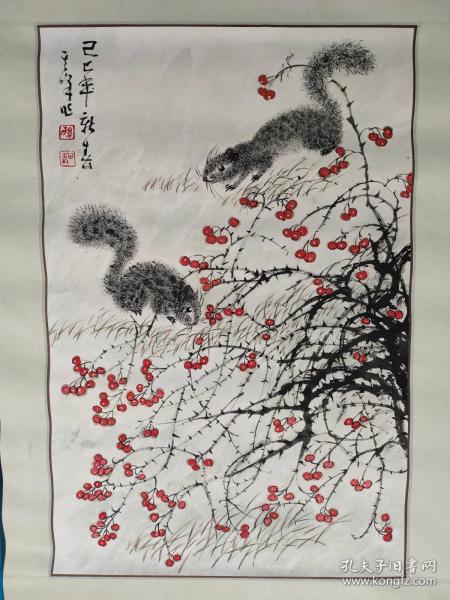 己巳年新春
其峰作
孔夫子旧书网
www.kongfz.com